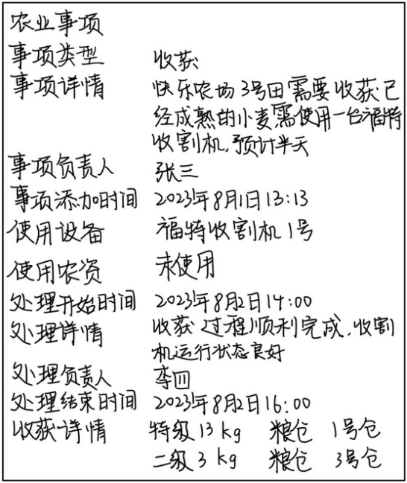 农业事项
事项类型 收获
事项详情 快乐农场3号田需要收获已
经成熟的小麦需使用一台福特
收割机，预计半天
事项负责人 张三
事项添加时间 2023年8月1日13:13
使用设备 福特收割机1号
使用农资 未使用
处理开始时间 2023年8月2日14:00
处理详情 收获过程顺利完成，收割
机运行状态良好
处理负责人 李四
处理结束时间 2023年8月2日16:00
收获详情 特级13kg 粮仓 1号仓
二级3kg 粮仓 3号仓